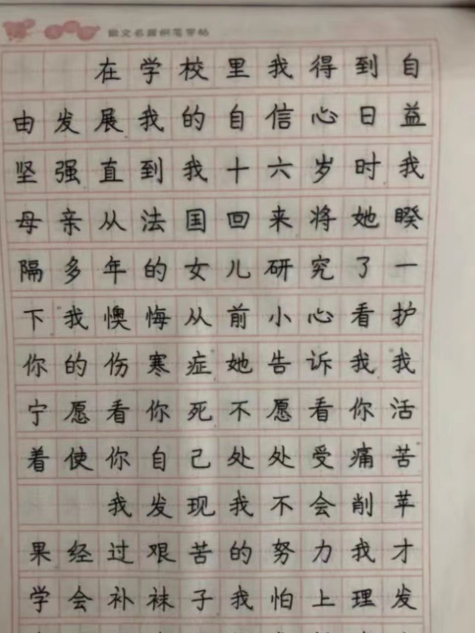 散文名篇钢笔字帖
在学校里我得到自
由发展我的自信心日益
坚强直到我十六岁时我
母亲从法国回来将她睽
隔多年的女儿研究了一
下我懊悔从前小心看护
你的伤寒症她告诉我我
宁愿看你死不愿看你活
着使你自己处处受痛苦
我发现我不会削苹
果经过艰苦的努力我才
学会补袜子我怕上理发